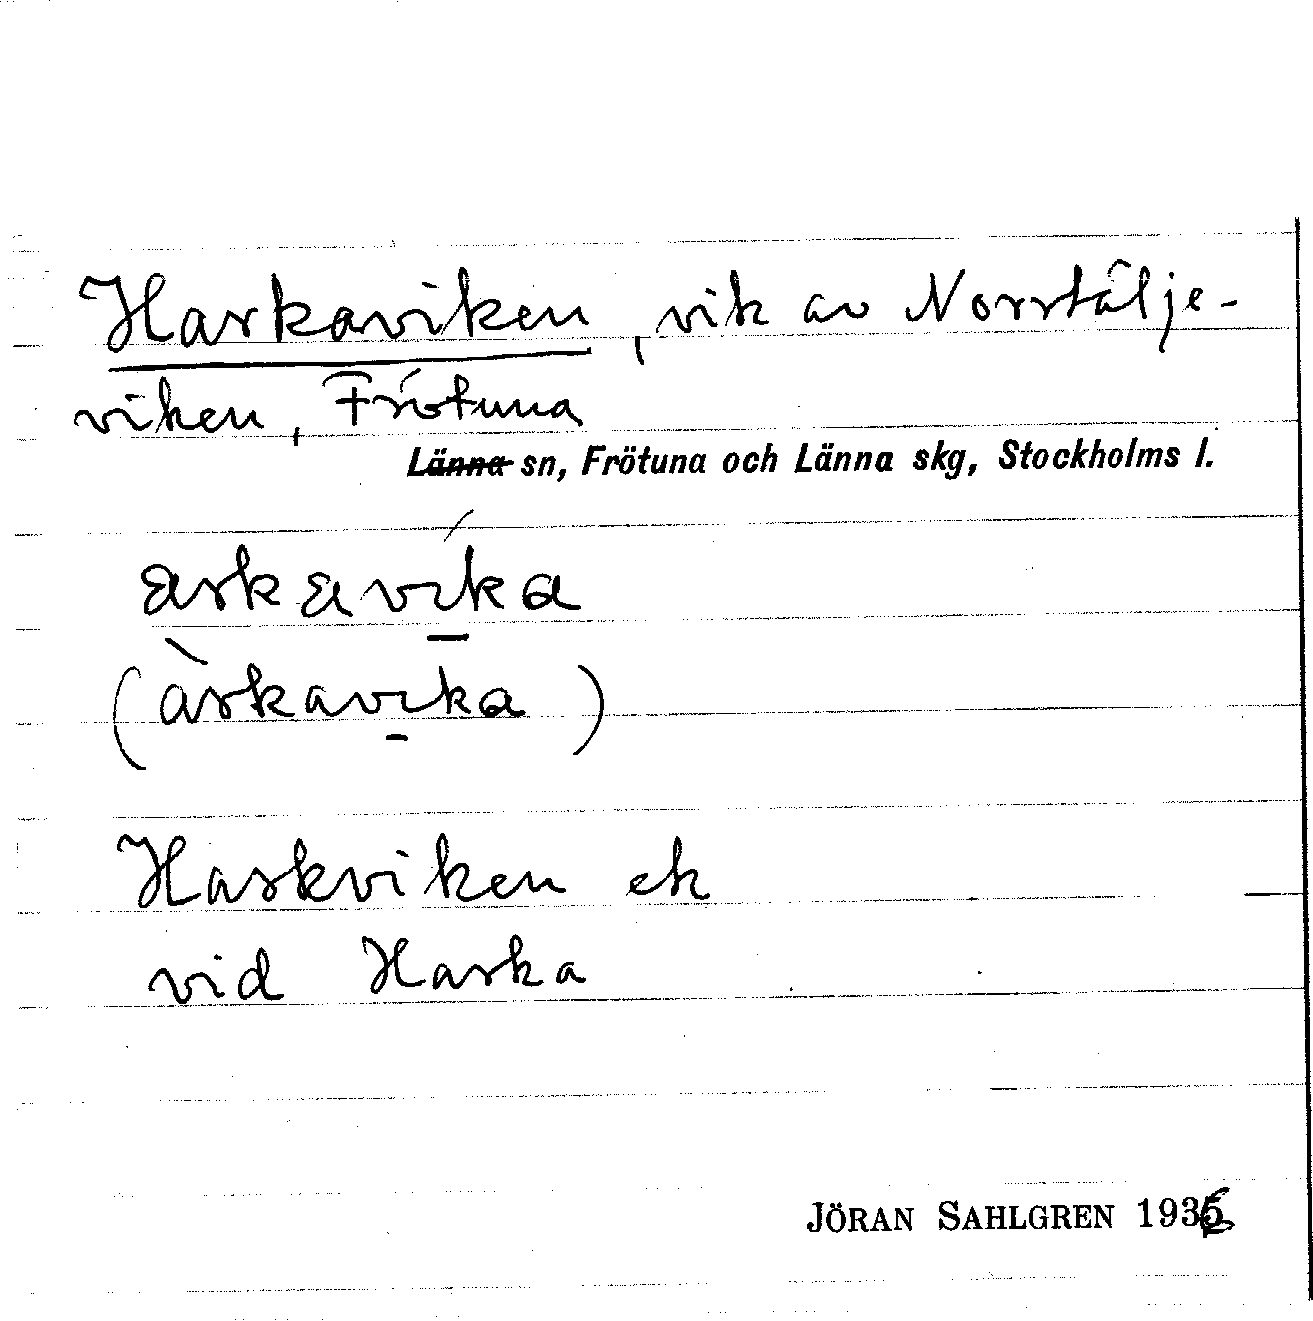 Harkaviken, vik av Norrtälje-
viken, Frötuna
Länna sn, Frötuna och Länna skg, Stockholms l.
arkavíka
(àrkavika)
Harkviken ek
vid Harka
JÖRAN SAHLGREN 1936